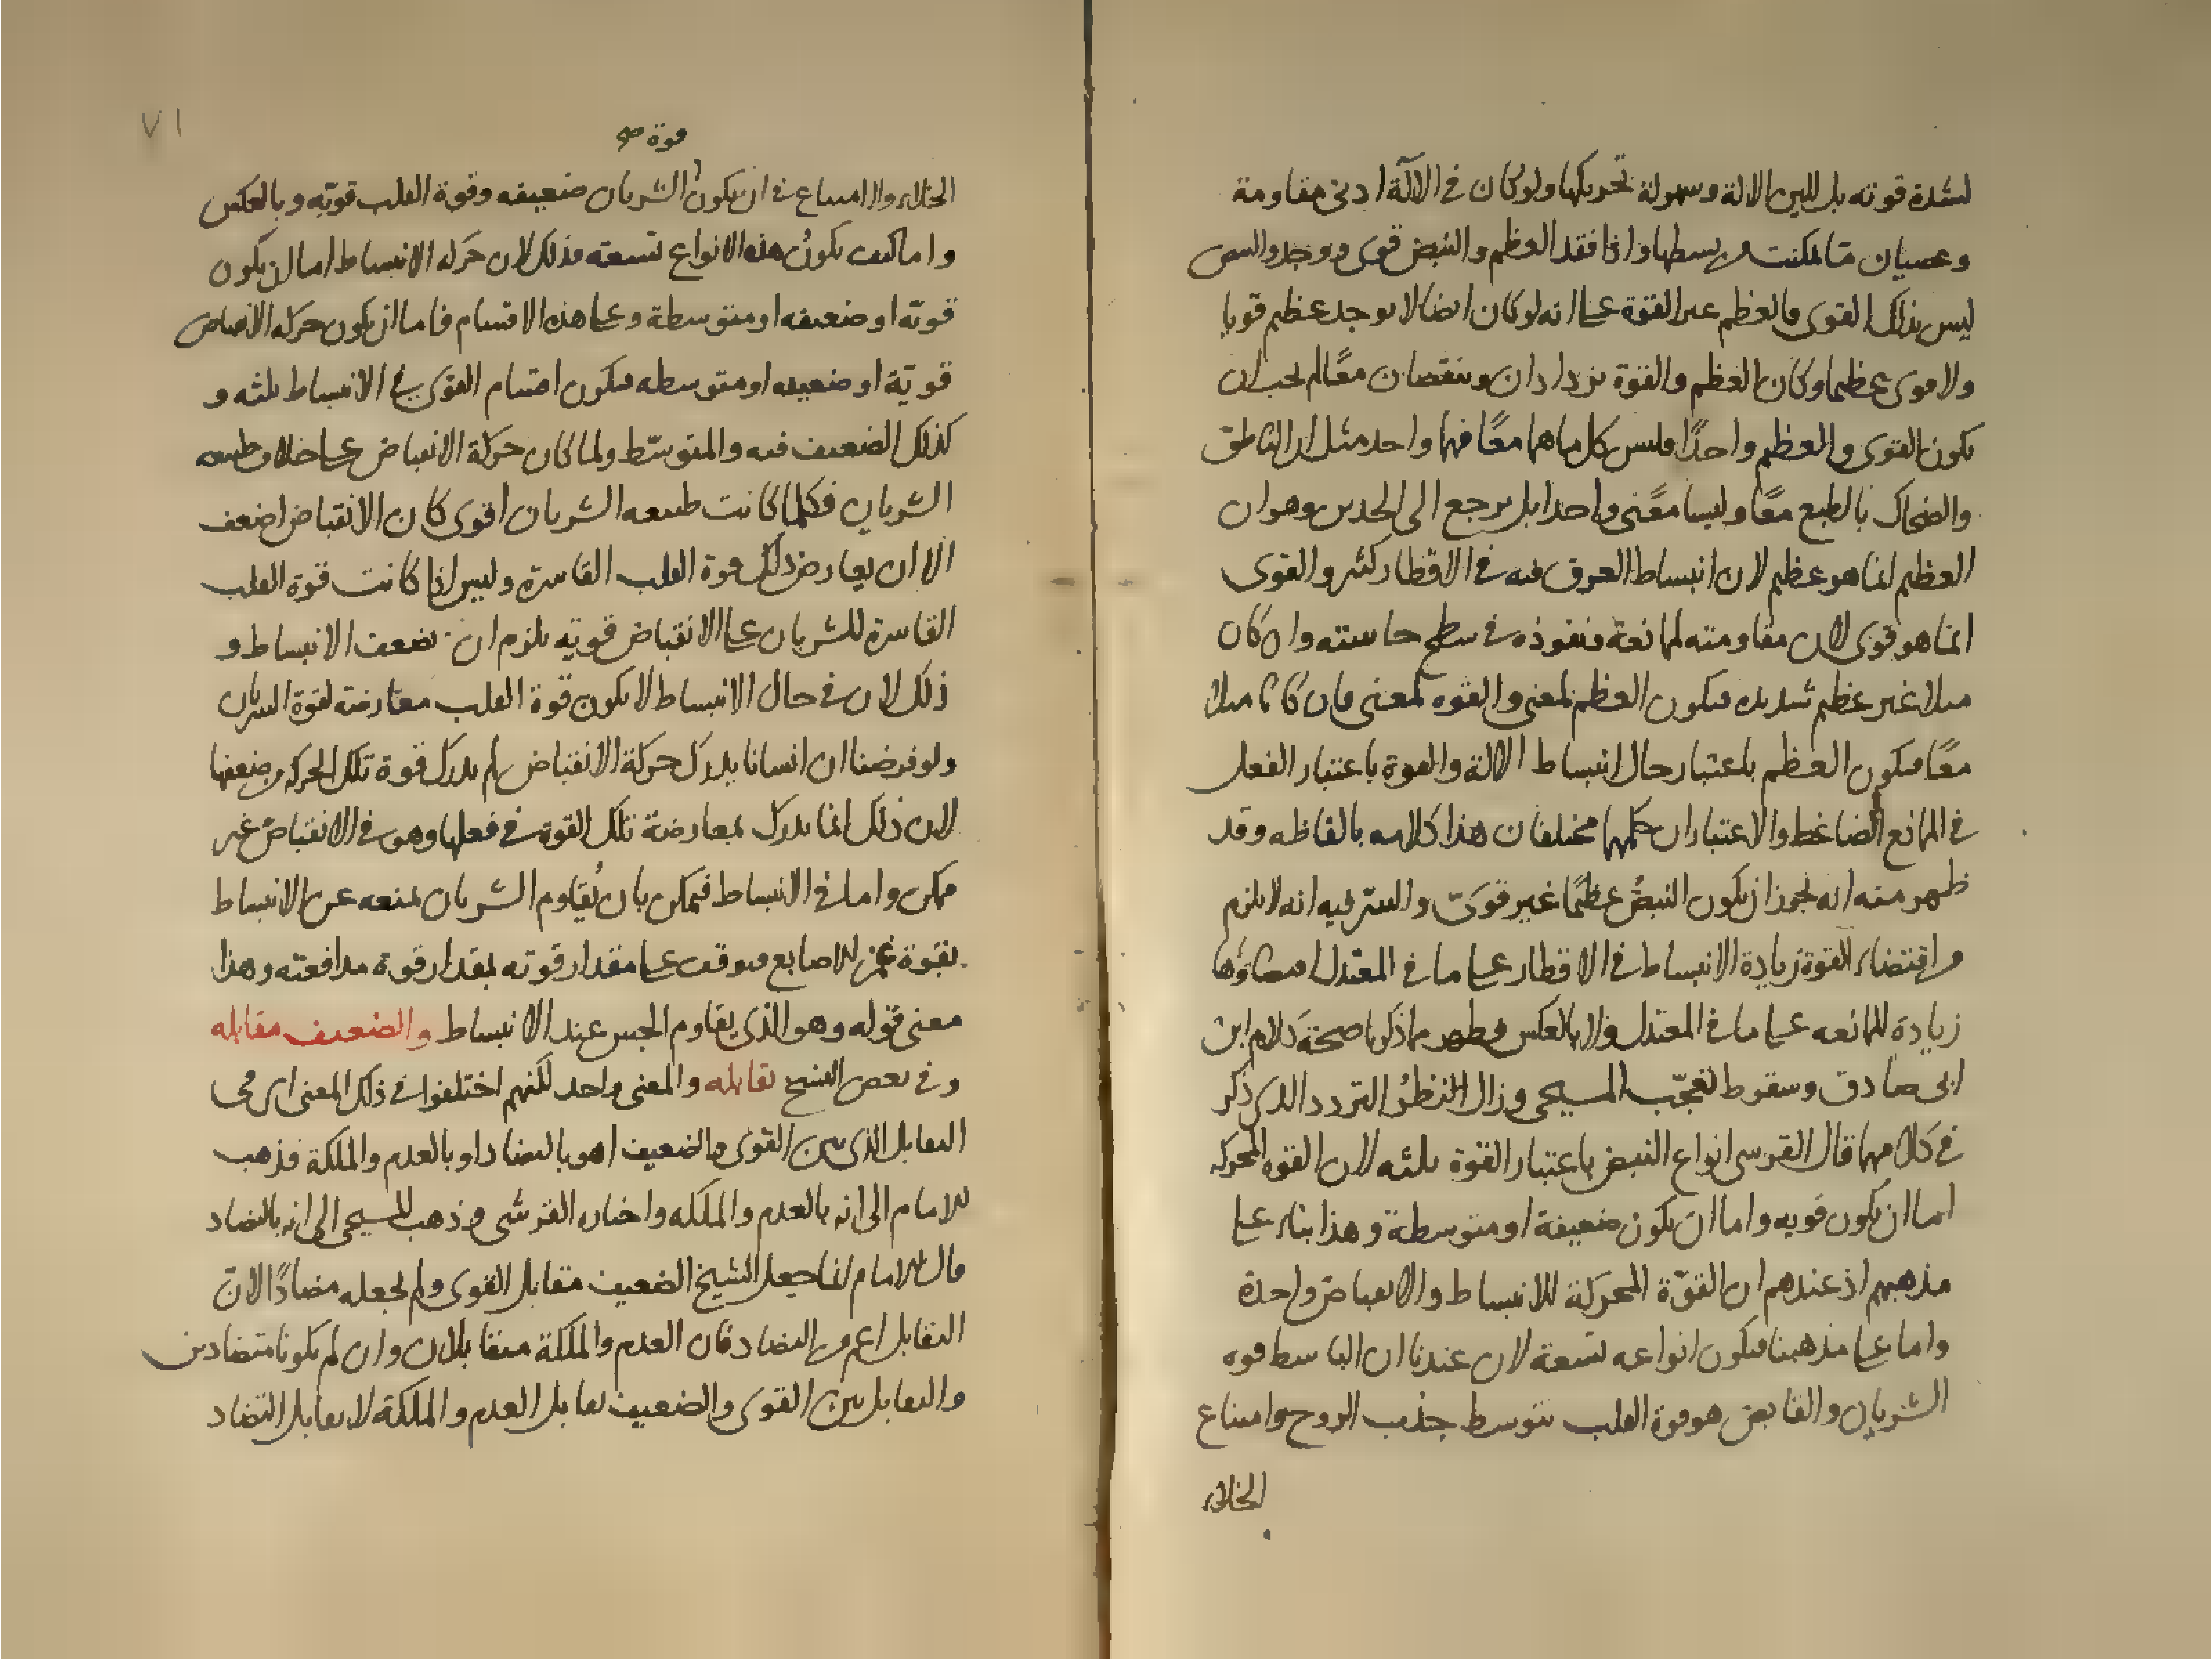 لشدة قوته بل للين الالة وسهولة تحريكها ولو كان في الآلة ادنى مقاومة
وعصيان ما امكنت من بسطها واذا فقد العظم والنبض قوى ووجد والنبض
ليس بذلك القوى فالعظم غير القوة على انه لو كان ايضا لا يوجد عظيم قويا
ولا قوى عظيما وكان العظم والقوة يزدادان وينقصان معًا لم يجب ان
يكون القوى والعظيم واحدًا فليس كل ما هما معًا فهما واحد مثل ان الناطق
والضحاك بالطبع معًا وليسا معًنى واحدا بل يرجع الى الحدين وهو ان
العظيم انما هو عظيم لان انبساط العرق فيه في الاقطار كثير والقوى
انما هو قوى لان مقاومته لممانعة ونفوذه في سطح حاسته وان كان
مثلا غير عظيم شديده فيكون العظم لمعنى والقوه لمعنى فان كانا مثلا
معًا فيكون العظم باعتبار حال انبساط الالة والقوة باعتبار الفعل
في المانع الضاغط والاعتباران حكمهما مختلفان هذا كلامه بالفاظه وقد
ظهر منه انه يجوز ان يكون النبضُ عظيمًا غير قوىّ والسّر فيه انه لا يلزم
من اقتضاء القوة زيادة الانبساط في الاقطار على ما في المعتدل اقتضاؤها
زيادة الممانعه على ما في المعتدل ولا بالعكس وظهر مما ذكرنا صحة كلام ابن
ابى صادق وسقوط تعجّب المسيحى وزال التردد الذى ذكر
في كلامهما قال القرشى انواع النبض باعتبار القوة ثلثه لان القوه المحركه
اما ان يكون قويه واما ان يكون ضعيفة او متوسطة وهذا بناء على
مذهبهم اذ عندهم ان القوّة المحركة للانبساط والانقباض واحدة
واما على مذهبنا فيكون انواعه تسعة لان عندنا ان الباسط قوه
الشريان والقابض هو قوة القلب بتوسط جذب الروح وامتناع
الخلاء
٧١
قوة صح
الخلاء ولا امتناع في ان يكون الشريان ضعيفه وقوة القلب قويّه وبالعكس
واما كيف يكون هذه الانواع تسعة فذلك لان حركه الانبساط اما ان يكون
قويّه او ضعيفه او متوسطة وعلى هذه الاقسام فاما ان يكون حركه الانقباض
قويّة او ضعيفه او متوسطه فيكون اقسام القوى في الانبساط ثلثه و
كذلك الضعيف فيه والمتوسّط ولما كان حركة الانقباض على خلاف طبيعه
الشريان فكلما كانت طبيعه الشريان اقوى كان الانقباض اضعف
الا ان يعارض ذلك قوة القلب القاسرة وليس اذا كانت قوة القلب
القاسرة للشريان على الانقباض قويه يلزم ان تضعف الانبساط و
ذلك لان في حال الانبساط لا يكون قوة القلب معارضة لقوة الشريان
ولو فرضنا ان انسانا يدرك حركة الانقباض لم يدرك قوة تلك الحركه وضعفها
لان ذلك انما يدرك بمعارضة تلك القوة في فعلها وهو في الانقباض غير
ممكن واما في الانبساط فيمكن بان يُقاوم الشريان بمنعه عن الانبساط
بقوة غمز الاصابع فيوقف على مقدار قوته بمقدار قوة مدافعته وهذا
معنى قوله وهو الذى يقاوم الجس عند الانبساط والضعيف مقابله
وفي بعض النسخ يقابله والمعنى واحد لكنهم اختلفوا في ذلك المعنى اى في
التقابل الذى بين القوى والضعيف اهو بالتضاد او بالعدم والملكة فذهب
الامام الى انه بالعدم والملكه واختاره القرشى وذهب المسيحى الى انه بالتضاد
قال الامام انما جعل الشيخ الضعيف مقابل القوى ولم يجعله مضادًا لان
التقابل اعم من التضاد فان العدم والملكة متقابلان وان لم يكونا متضادين
والتقابل بين القوى والضعيف تقابل العدم والملكة لا تقابل التضاد